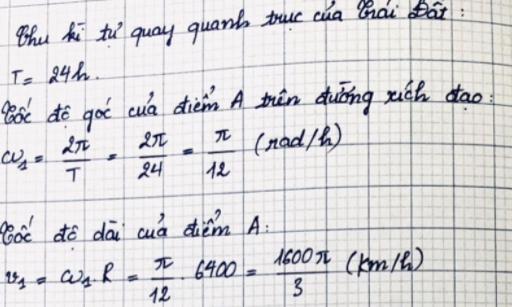 Chu kì tự quay quanh trục của Trái Đất:
T = 24h.
Tốc độ góc của điểm A trên đường xích đạo:
ω₁ = 2π/T = 2π/24 = π/12 (rad/h)
Tốc độ dài của điểm A:
v₁ = ω₁ R = π/12 . 6400 = 1600π/3 (km/h)